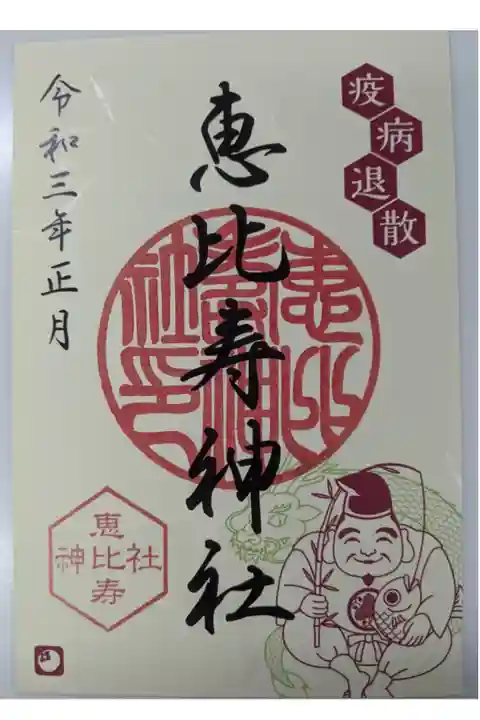 疫病退散
恵比寿神社
恵比寿神社印
令和三年正月
恵比寿
神社